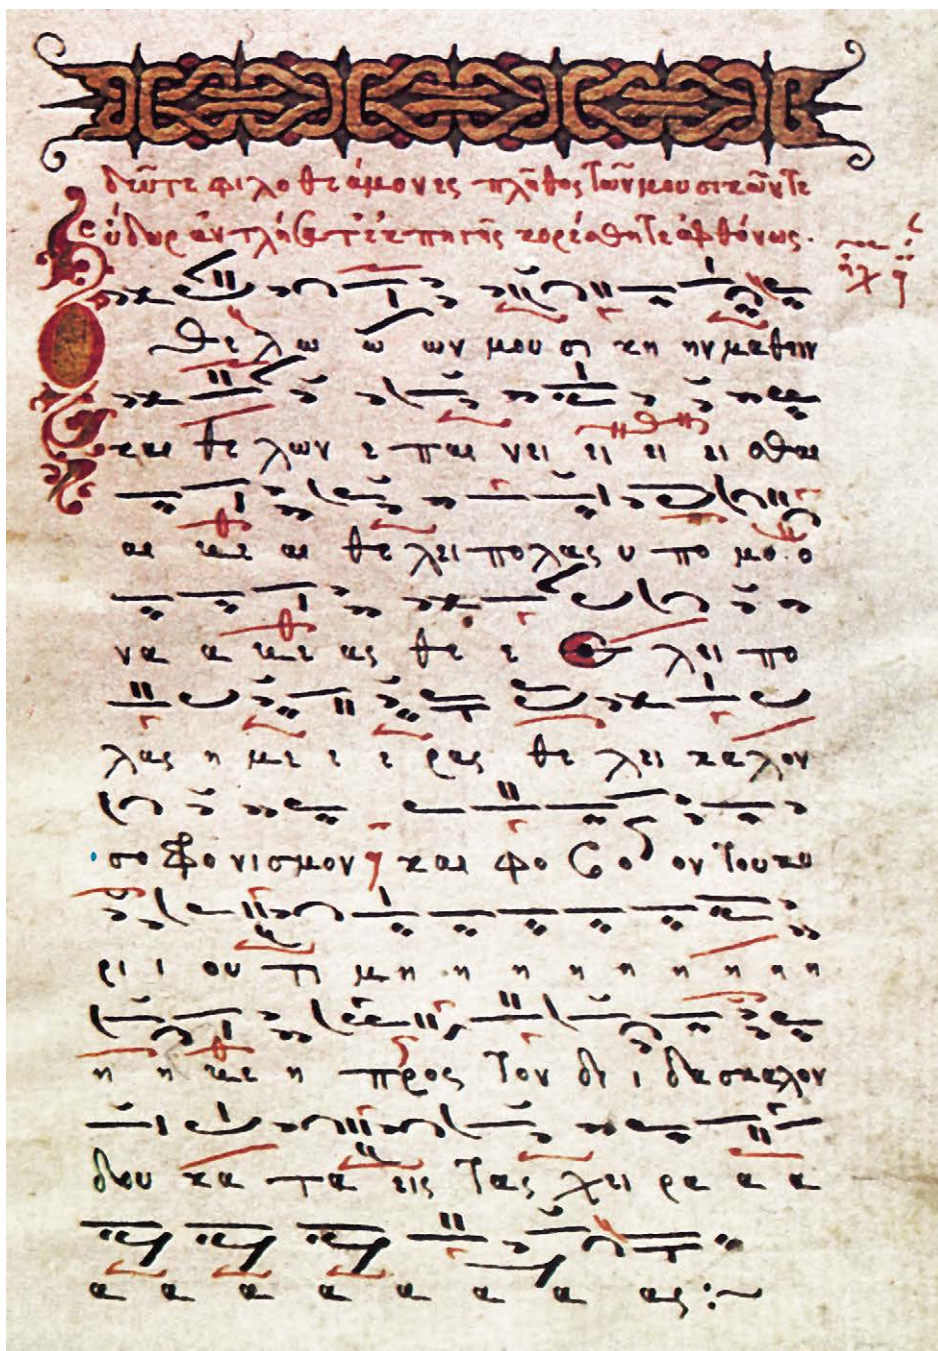 δεῦτε φιλοθεάμονες πλῆθος τῶν μουσικῶν τε
ὕδωρ ἀντλήσατε ἐκ πηγῆς κορέσθητε ἀφθόνως.
ἦχ
θε λω ω ων μου σι κη ην μαθειν
και θε λων ε παι νει ει ει ει σθαι
αι αι θε λει πολας υ πο μο ο
να α ας θε ε λει πο
λας η με ε ε ρας θε λει καλον
σο φο νισμον και φο βο ον του κυ
ρι ι ου τι μη η η η η η η η
η η η προς τον δι ι δασκαλον
δου κα τα εις τας χει ρα α α
α α α α α α α ας:~